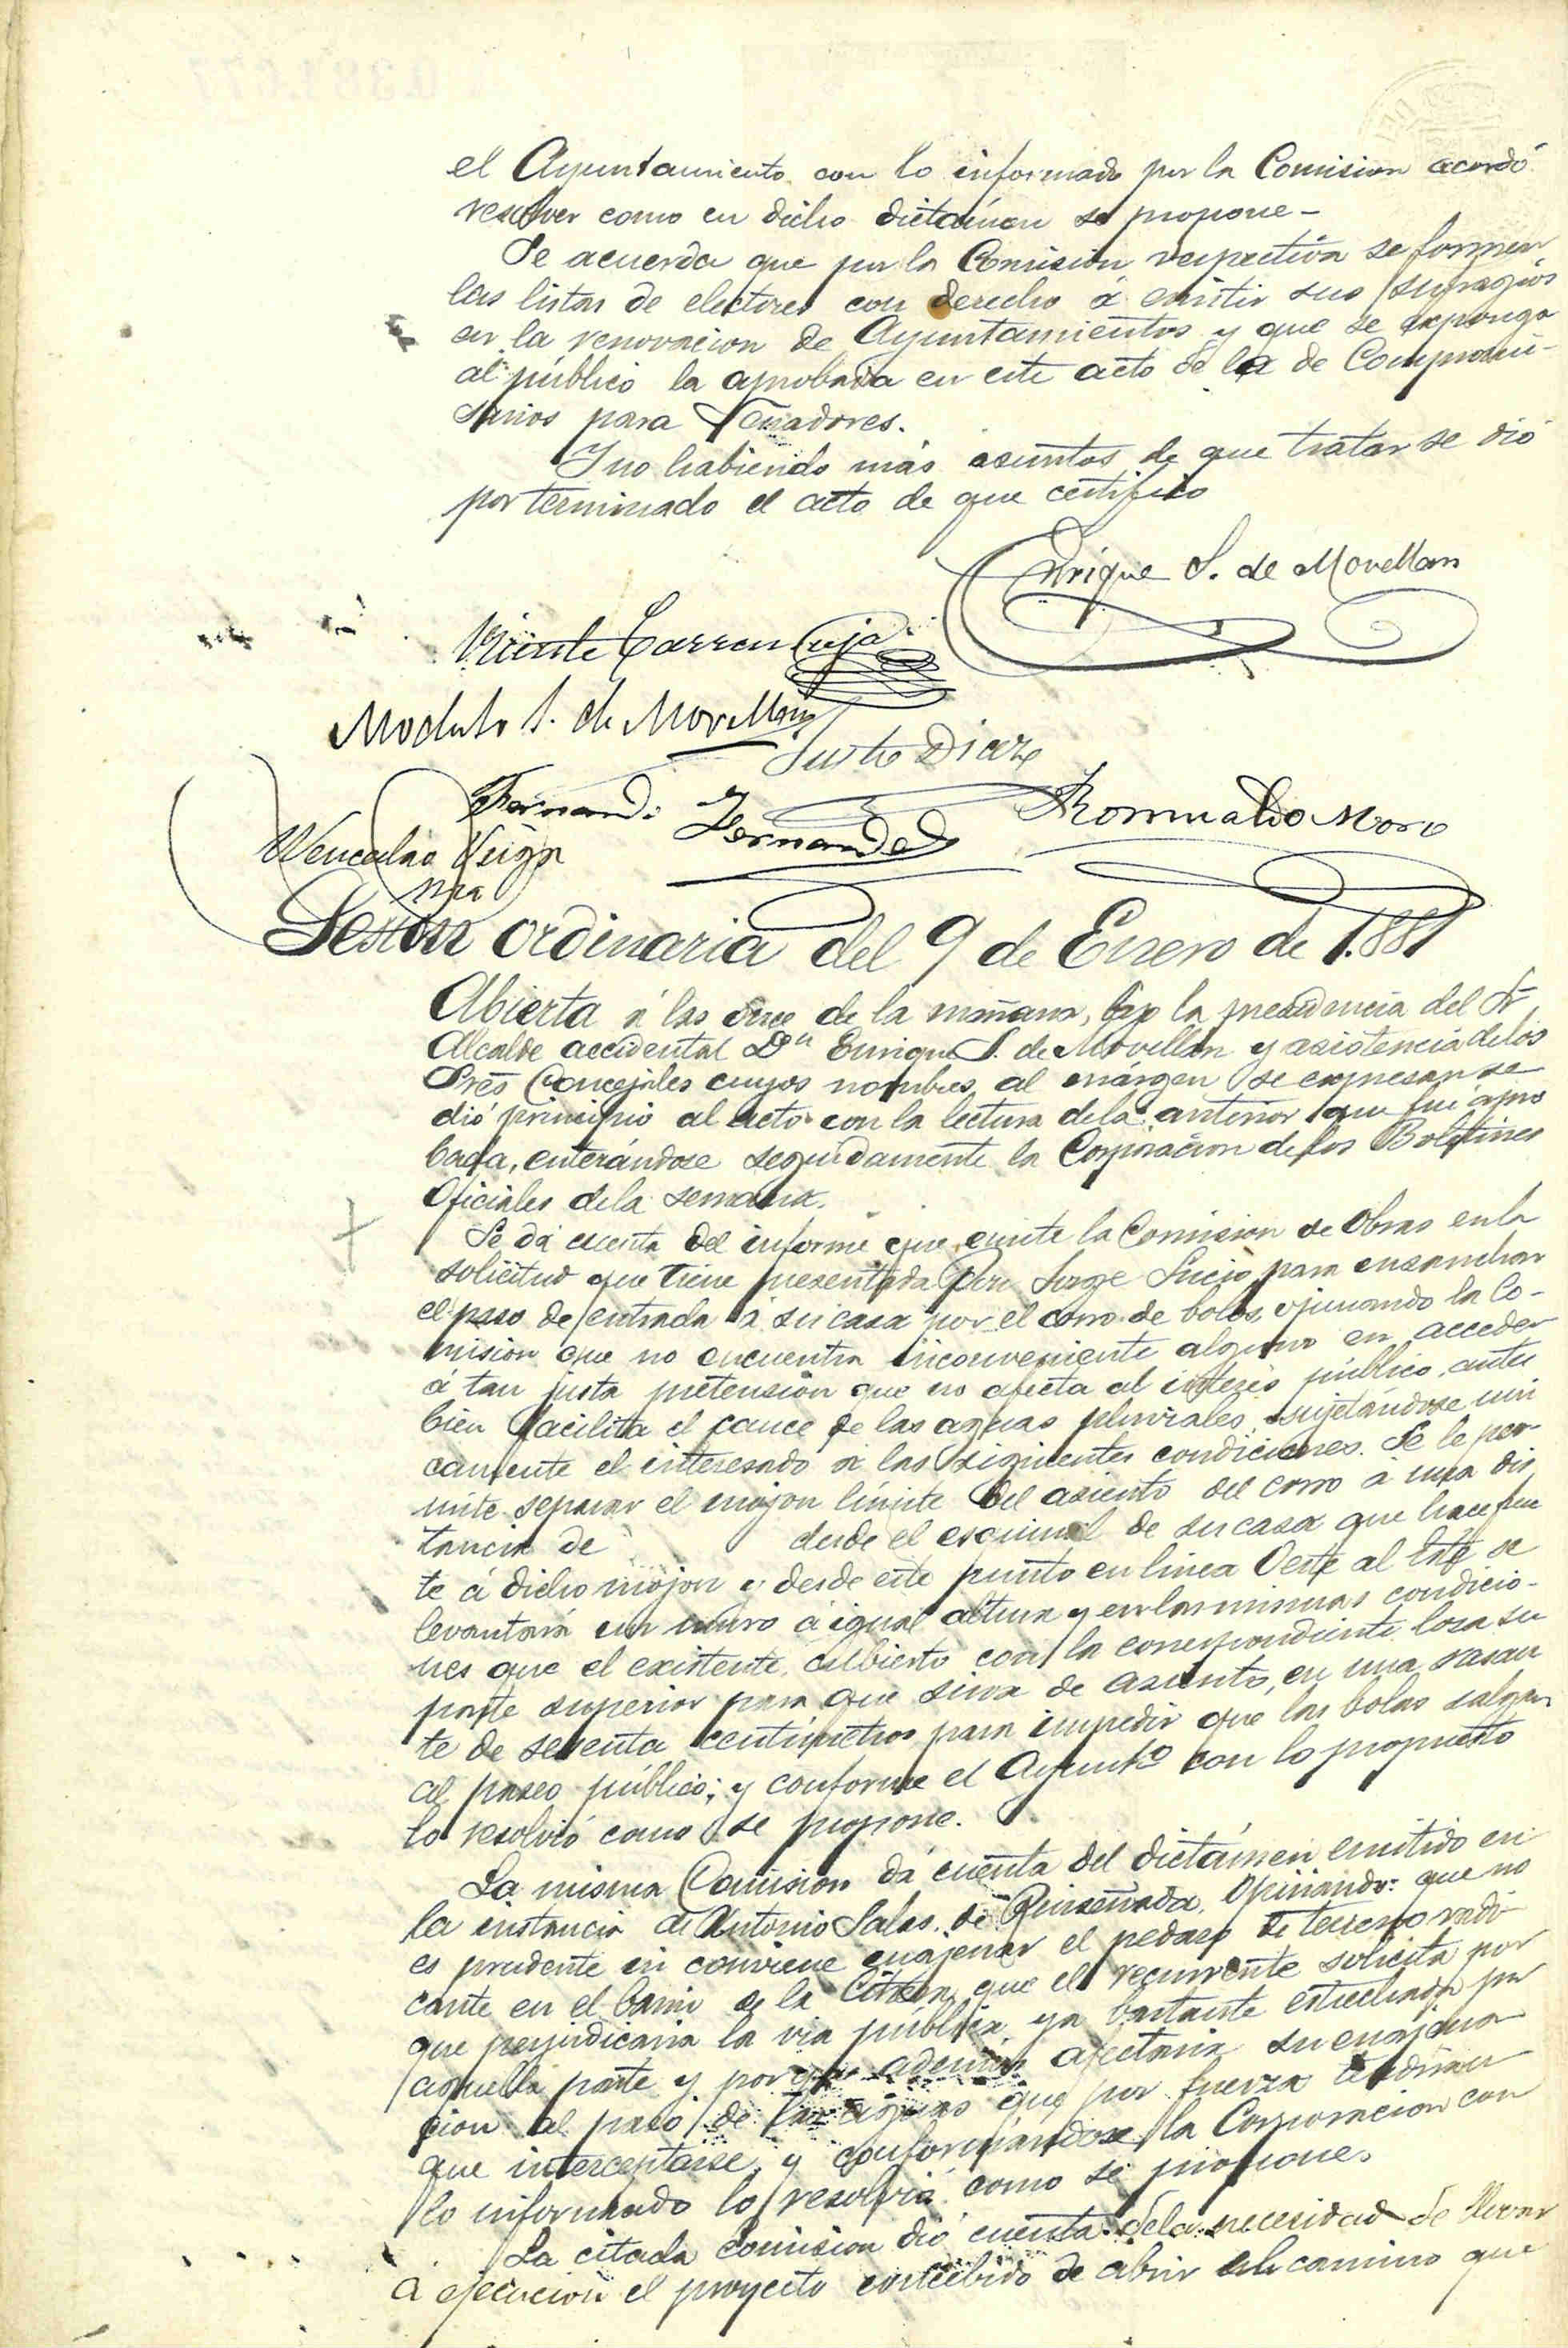 el Ayuntamiento con lo informado por la Comision acordó
resolver como en dicho dictámen se propone-
Se acuerda que por la Comision respectiva se formen
las listas de electores con derecho á emitir sus sufragios
en la renovacion de Ayuntamientos y que se exponga
al público la aprobada en este acto de la de Compromi-
sarios para Senadores.
Y no habiendo más asuntos de que tratar se dió
por terminado el acto de que certifico
Enrique S. de Movellan
Vicente Carren Ceja
Modesto S. de Movellan
Justo Diaz
Fernando Fernandez
Romualdo Moro
Wenceslao Veiga
Sesion ordinaria del 9 de Enero de 1.881
Abierta á las once de la mañana, bajo la presidencia del Sr
Alcalde accidental Dn Enrique S. de Movellan y asistencia de los
Sres Concejales cuyos nombres al márgen se expresan se
dió principio al acto con la lectura de la anterior que fué apro
bada, enterándose seguidamente la Corporacion de los Boletines
Oficiales de la semana.
Se dá cuenta del informe que emite la Comision de Obras en la
solicitud que tiene presentada Dn Jorge Lucio para ensanchar
el paso de entrada á su casa por el corro de bolos, opinando la Co-
mision que no encuentra inconveniente alguno en acceder
á tan justa pretension que no afecta al interés público, antes
bien facilita el cauce de las aguas pluviales, sujetándose uni
camente el interesado á las siguientes condiciones. Se le per-
mite separar el mojon límite del asiento del corro á una dis
tancia de desde el esquinal de su casa que hace fren
te á dicho mojon y desde este punto en línea Oeste al Este se
levantará un muro á igual altura y en las mismas condicio-
nes que el existente, cubierto con la correspondiente losa su
parte superior para que sirva de asiento, en una rasan
te de setenta centímetros para impedir que las bolas salgan
al paseo público; y conforme el Ayunto con lo propuesto
lo resolvió como se propone.
La misma Comision dá cuenta del dictámen emitido en
la instancia de Antonio Salas, de Ruiseñada, Opinando: que no
es prudente ni conviene enajenar el pedazo de terreno radi
cante en el barrio de la que el recurrente solicita por
que perjudicaria la via pública ya bastante estrechada por
aquella parte y por que además afectaria su enajena
cion al paso de las aguas que por fuerza tendrian
que interceptarse, y conformándose la Corporacion con
lo informado lo resolvia como se propone.
La citada Comision dió cuenta de la necesidad de llevar
á ejecucion el proyecto concebido de abrir un camino que